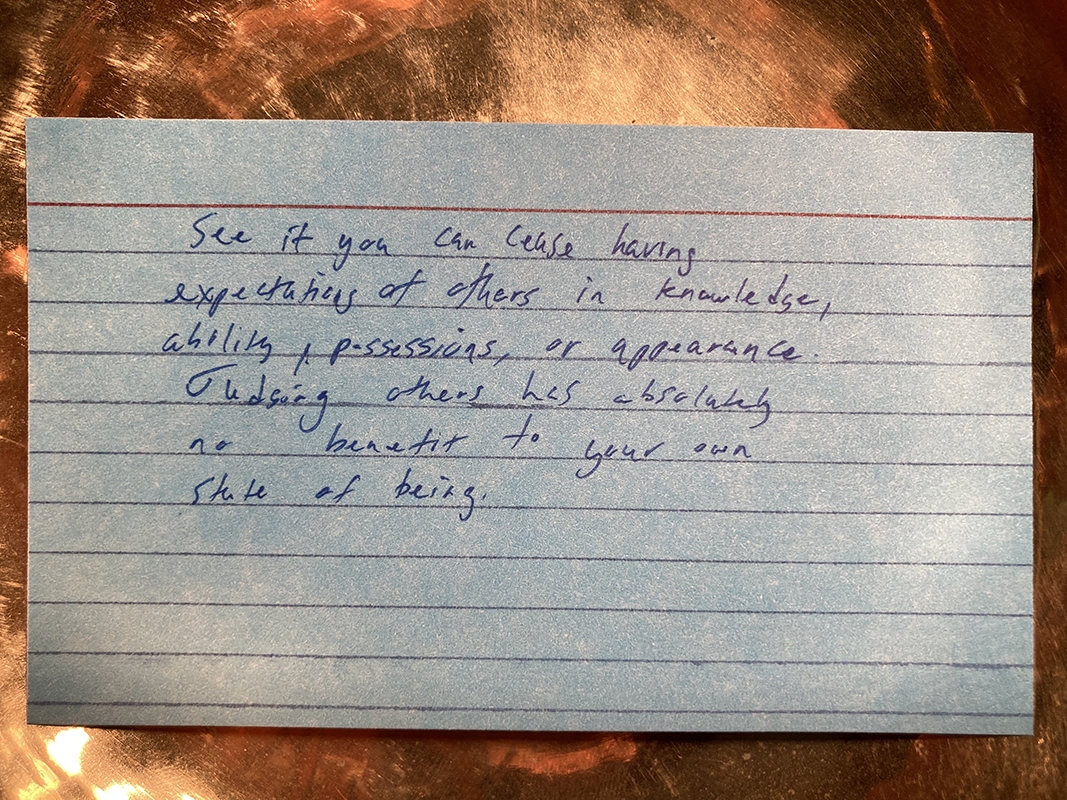 See if you can cease having
expectations of others in knowledge,
ability, possessions, or appearance.
Judging others has absolutely
no benefit to your own
state of being.